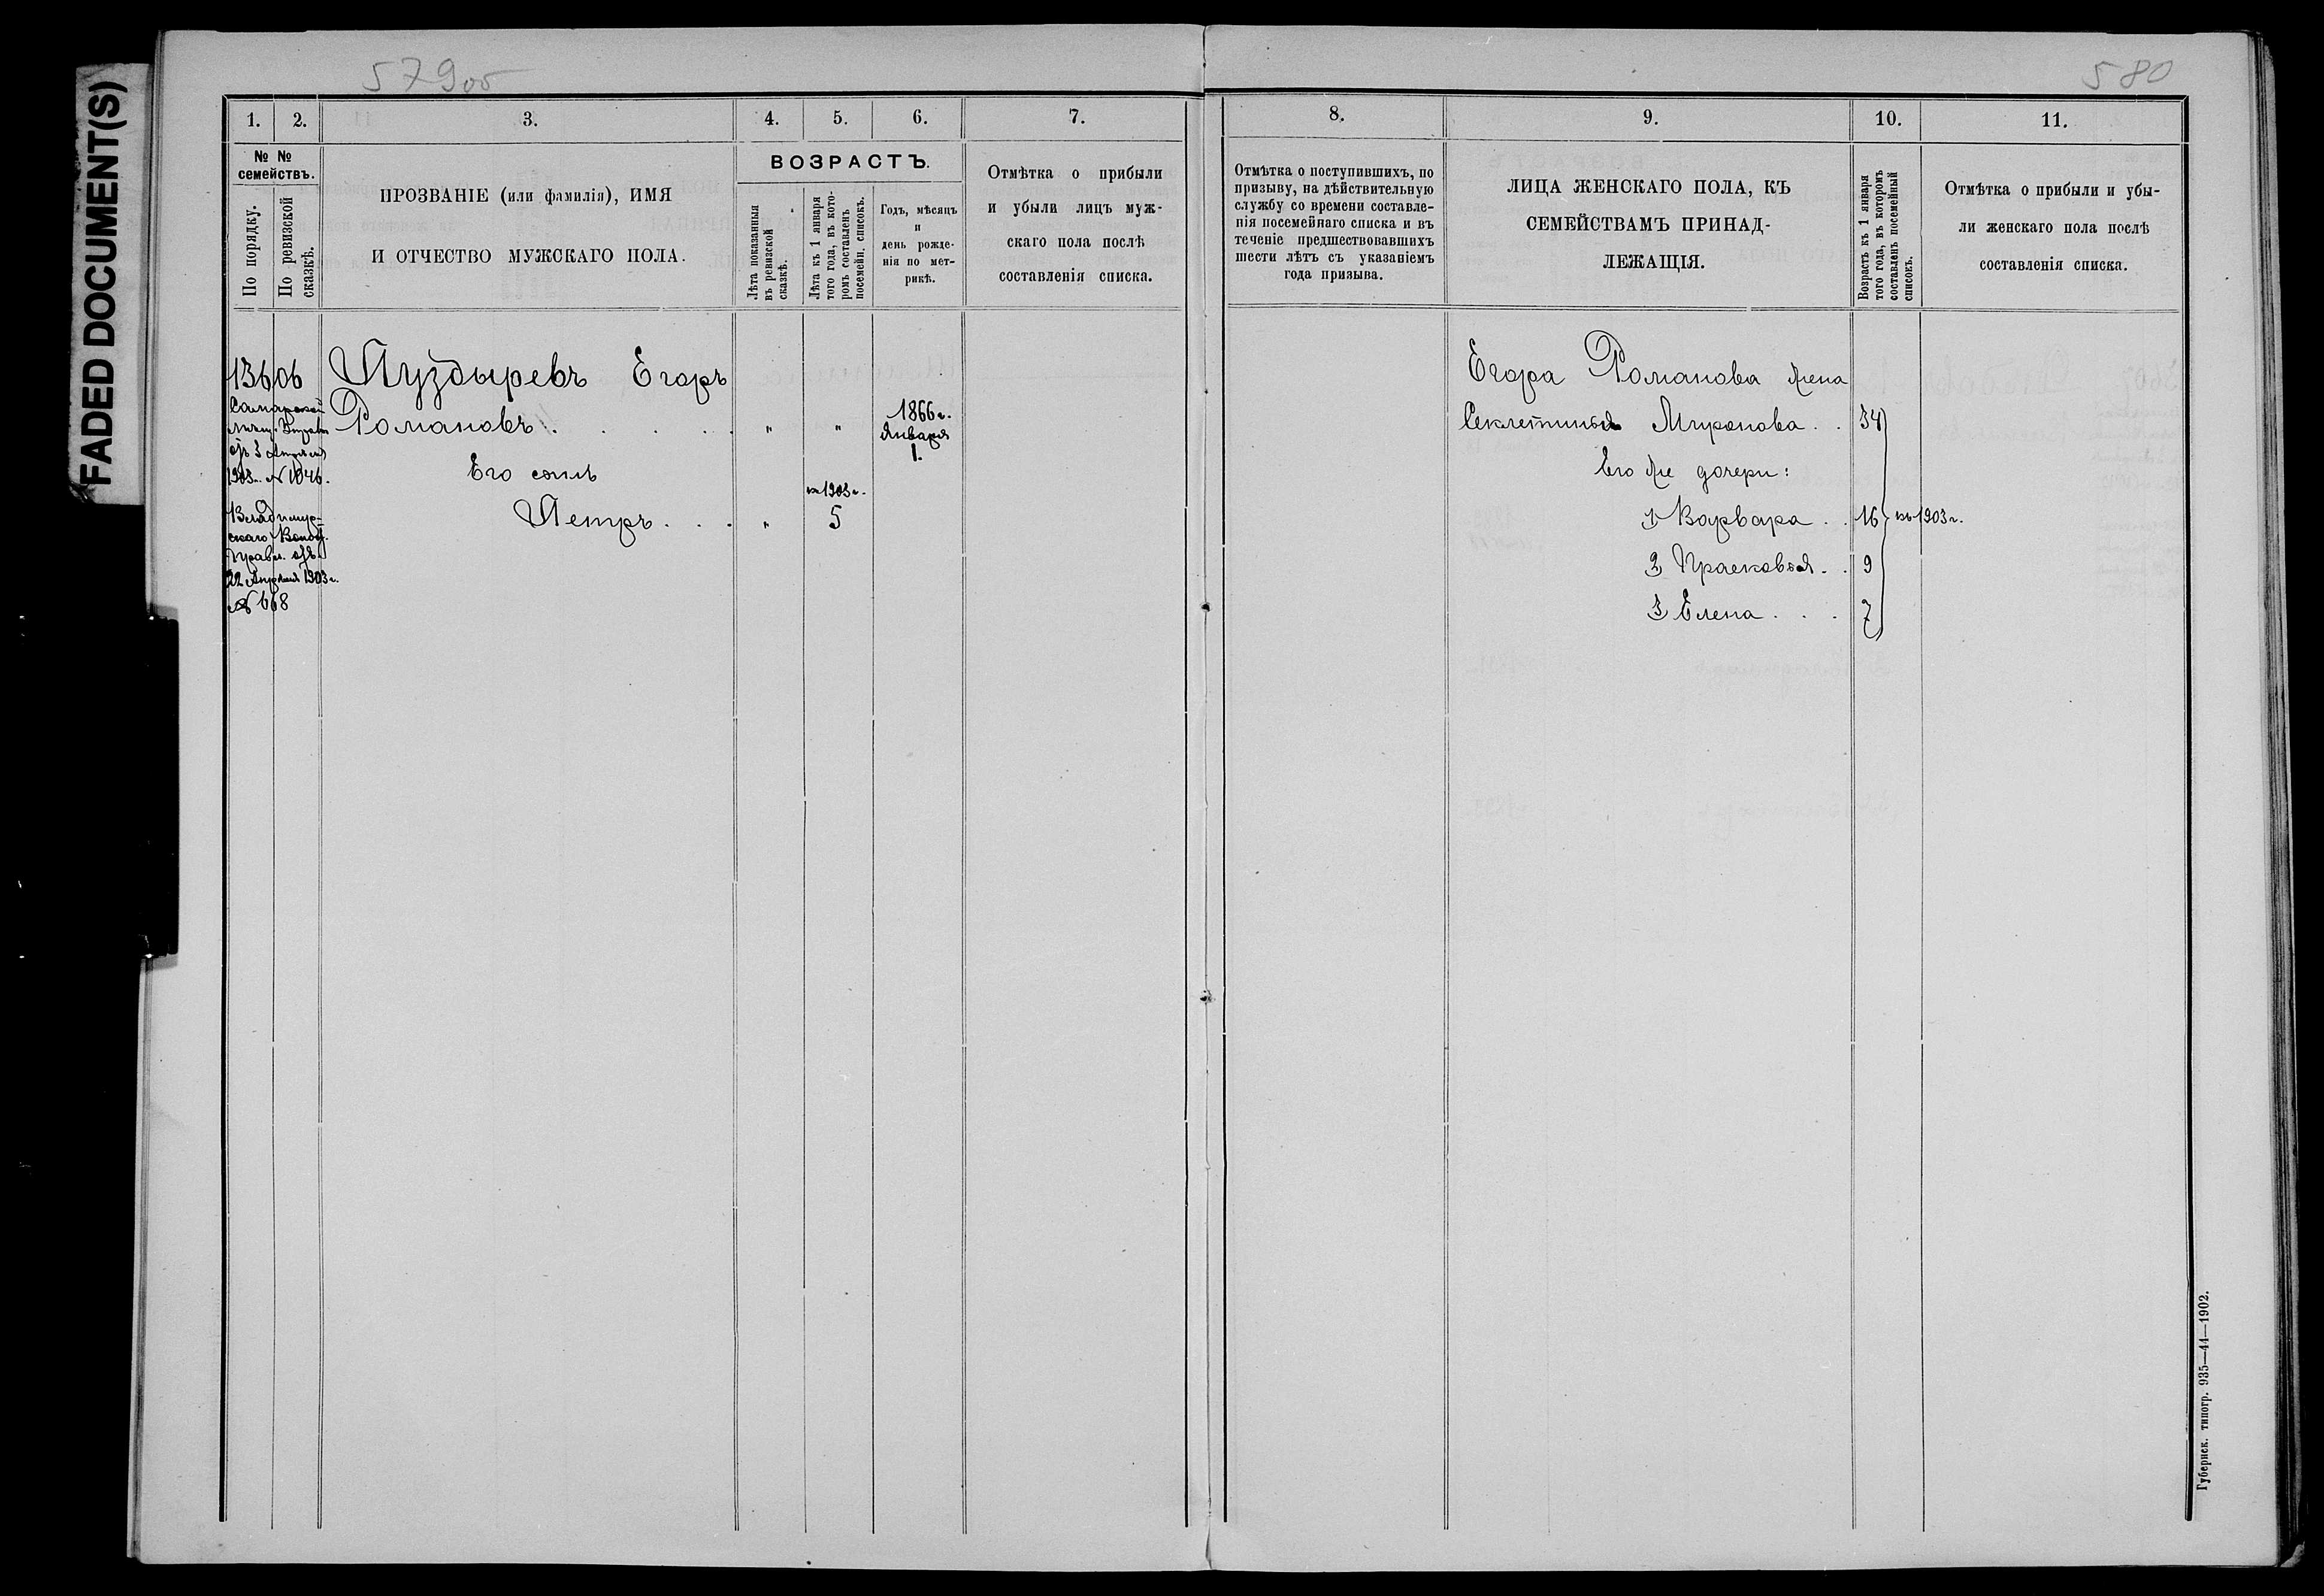 FADED DOCUMENT(S)
579об
580
1. 2. 3. 4. 5. 6. 7.
№ № семействъ.
По порядку.
По ревизской сказкѣ.
ПРОЗВАНІЕ (или фамилія), ИМЯ
И ОТЧЕСТВО МУЖСКАГО ПОЛА.
ВОЗРАСТЪ.
Лѣта показанныя
въ ревизской
сказкѣ.
Лѣта къ 1 января
того года, въ кото-
ромъ составленъ
посемейн. списокъ.
Годъ, мѣсяцъ
и
день рожде-
нія по мет-
рикѣ.
Отмѣтка о прибыли
и убыли лицъ муж-
скаго пола послѣ
составленія списка.
13606
Самарской
Мѣщ. Управы
отъ 3 Апрѣля
1903 г. № 1046.
Владимір-
скаго Волос.
Правл. отъ
22 Апрѣля 1903 г.
№ 668
Пуздыревъ Егоръ
Романовъ . . . . " " 1866 г.
Января
1.
Его сынъ
Петръ . . . "
въ 1903 г.
5
8. 9. 10. 11.
Отмѣтка о поступившихъ, по
призыву, на дѣйствительную
службу со времени составле-
нія посемейнаго списка и въ
теченіе предшествовавшихъ
шести лѣтъ съ указаніемъ
года призыва.
ЛИЦА ЖЕНСКАГО ПОЛА, КЪ
СЕМЕЙСТВАМЪ ПРИНАД-
ЛЕЖАЩІЯ.
Возрастъ къ 1 января
того года, въ которомъ
составленъ посемейный
списокъ.
Отмѣтка о прибыли и убы-
ли женскаго пола послѣ
составленія списка.
Егора Романова жена
Секлетинья Миронова . . 34
Его же дочери:
1) Варвара . . 16 въ 1903 г.
2) Прасковья . . 9
3) Елена . . . 7
Губернск. типогр. 935—44—1902.